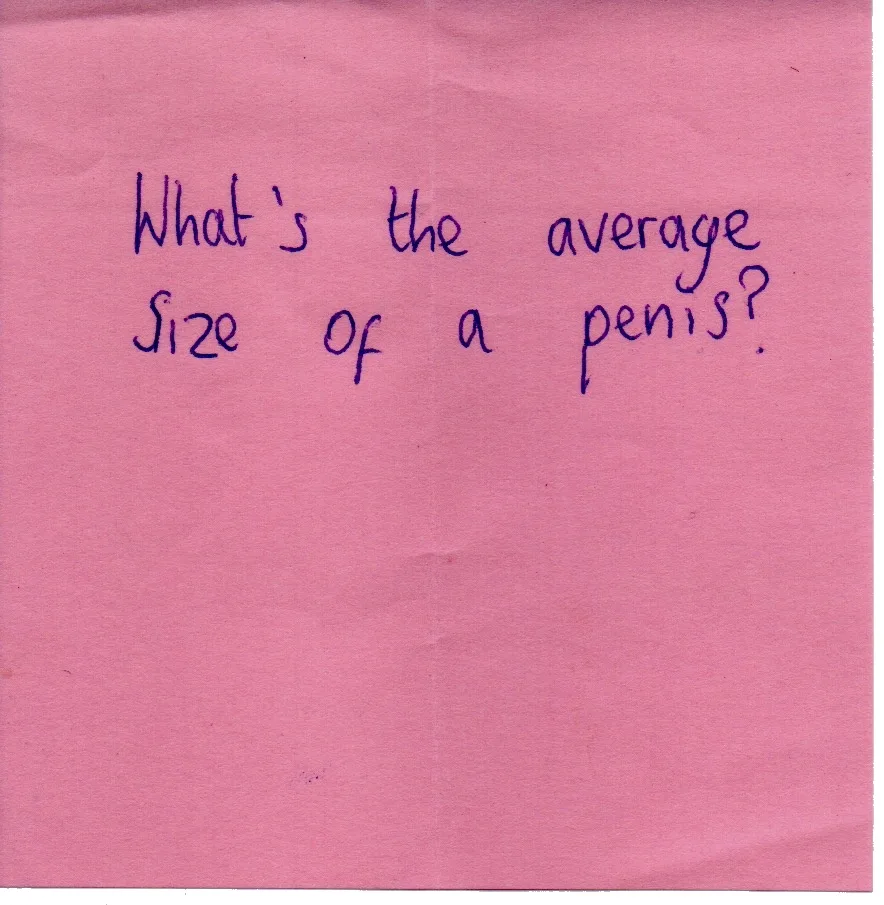 What's the average
size of a penis?